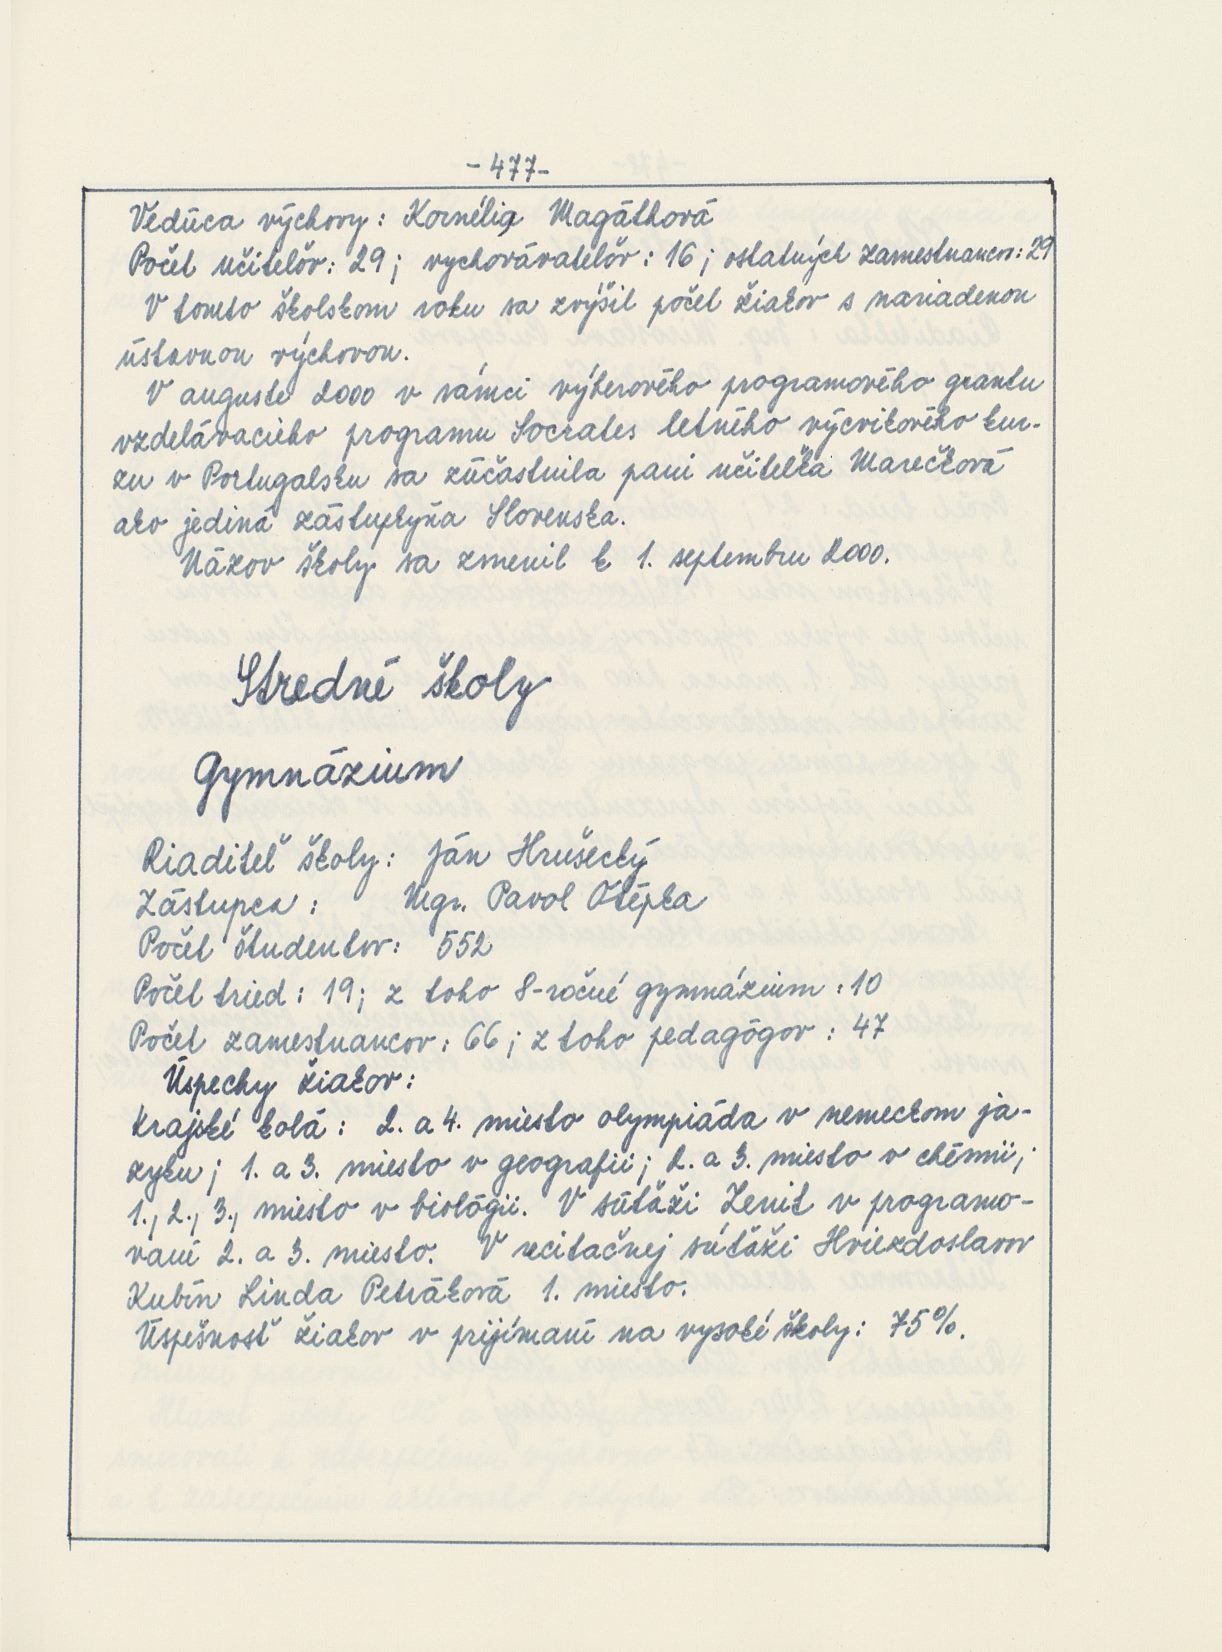 - 477-
Vedúca výchovy: Kornélia Magáthová
Počet učiteľov: 29; vychovávateľov: 16; ostatných zamestnancov: 29
V tomto školskom roku sa zvýšil počet žiakov s nariadenou
ústavnou výchovou.
V auguste 2000 v rámci výberového programového grantu
vzdelávacieho programu Socrates letného výcvikového kur-
zu v Portugalsku sa zúčastnila pani učiteľka Marečková
ako jediná zástupkyňa Slovenska.
Názov školy sa zmenil k 1. septembru 2000.
Stredné školy
Gymnázium
Riaditeľ školy: Ján Hrušecký
Zástupca: Mgr. Pavol Otépka
Počet študentov: 552
Počet tried: 19; z toho 8-ročné gymnázium: 10
Počet zamestnancov: 66; z toho pedagógov: 47
Úspechy žiakov:
Krajské kolá: 2. a 4. miesto olympiáda v nemeckom ja-
zyku; 1. a 3. miesto v geografii; 2. a 3. miesto v chémii;
1., 2., 3., miesto v biológii. V súťaži Zenit v programo-
vaní 2. a 3. miesto. V recitačnej súťaži Hviezdoslavov
Kubín Linda Petráková 1. miesto.
Úspešnosť žiakov v prijímaní na vysoké školy: 75%.